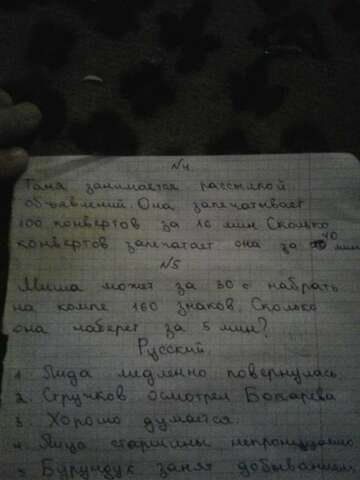 №4.
Таня занимается рассылкой
объявлений. Она запечатывает
100 конвертов за 16 мин. Сколько
конвертов запечатает она за 40 мин
№5
Миша может за 30 с набрать
на компе 160 знаков. Сколько
она наберет за 5 мин?
Русский.
1. Лида медленно повернулась.
2. Стручков осмотрел Бокарева
3. Хорошо думается.
4. Лица старшины непроницаемо
5. Бурундук занят добыванием